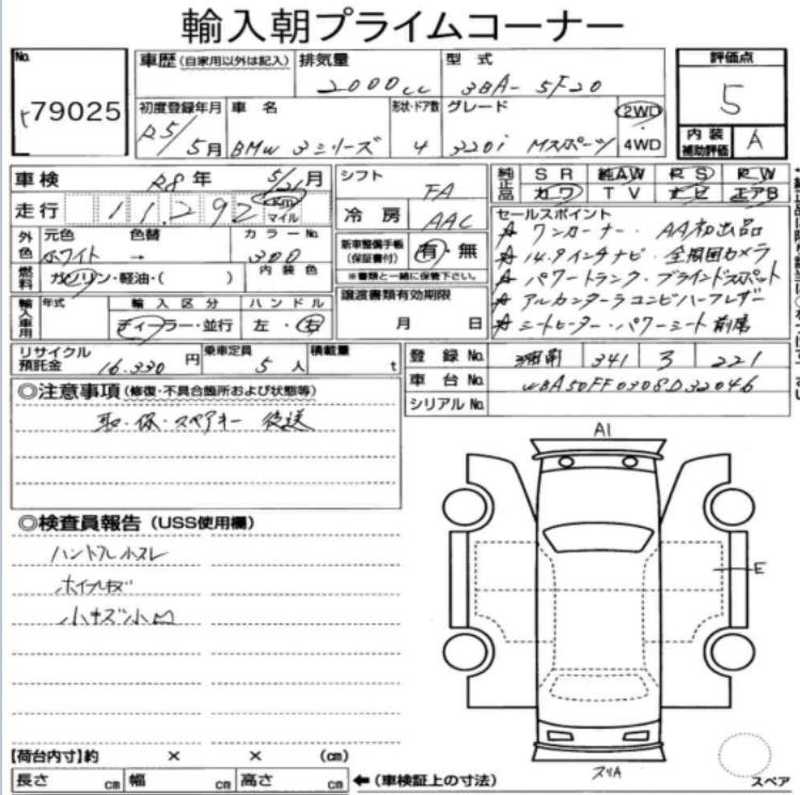 輸入朝プライムコーナー
No. 79025
車歴(自家用以外は記入) 排気量 2000cc 型式 3BA-5F20
評価点 5
初度登録年月 R5/5月 車名 BMW 3シリーズ 形状・ドア数 4 グレード 320i Mスポーツ 2WD・4WD
内装補助評価 A
車検 R8年5/21月 シフト FA
純正品 SR 純AW RS RW
カワ TV ナビ エアB
走行 11,292 Km マイル 冷房 AAC
セールスポイント
外色 元色 ホワイト 色替 → カラーNo. 300
新車整備手帳(保証書付) 有・無
※書類と一緒に保管下さい。
☆ ワンオーナー・AA初出品
☆ 14.9インチナビ・全周囲カメラ
☆ パワートランク・ブラインドスポット
☆ アルカンターラコンビハーフレザー
☆ シートヒーター・パワーシート前席
燃料 ガソリン・軽油・( ) 内装色
輸入車用 年式 輸入区分 ディーラー・並行 ハンドル 左・右
譲渡書類有効期限 月 日
リサイクル預託金 16.330円 乗車定員 5人 積載量 t
登録No. 341 3 221
車台No. WBA50FF0308D32046
シリアルNo.
◎注意事項(修復・不具合箇所および状態等)
取・保・スペアキー 後送
◎検査員報告(USS使用欄)
ハンドル小スレ
ホイールキズ
小キズ小凹
A1
E
スリA
スペア
【荷台内寸】約 × × (cm)
長さ cm 幅 cm 高さ cm ←(車検証上の寸法)